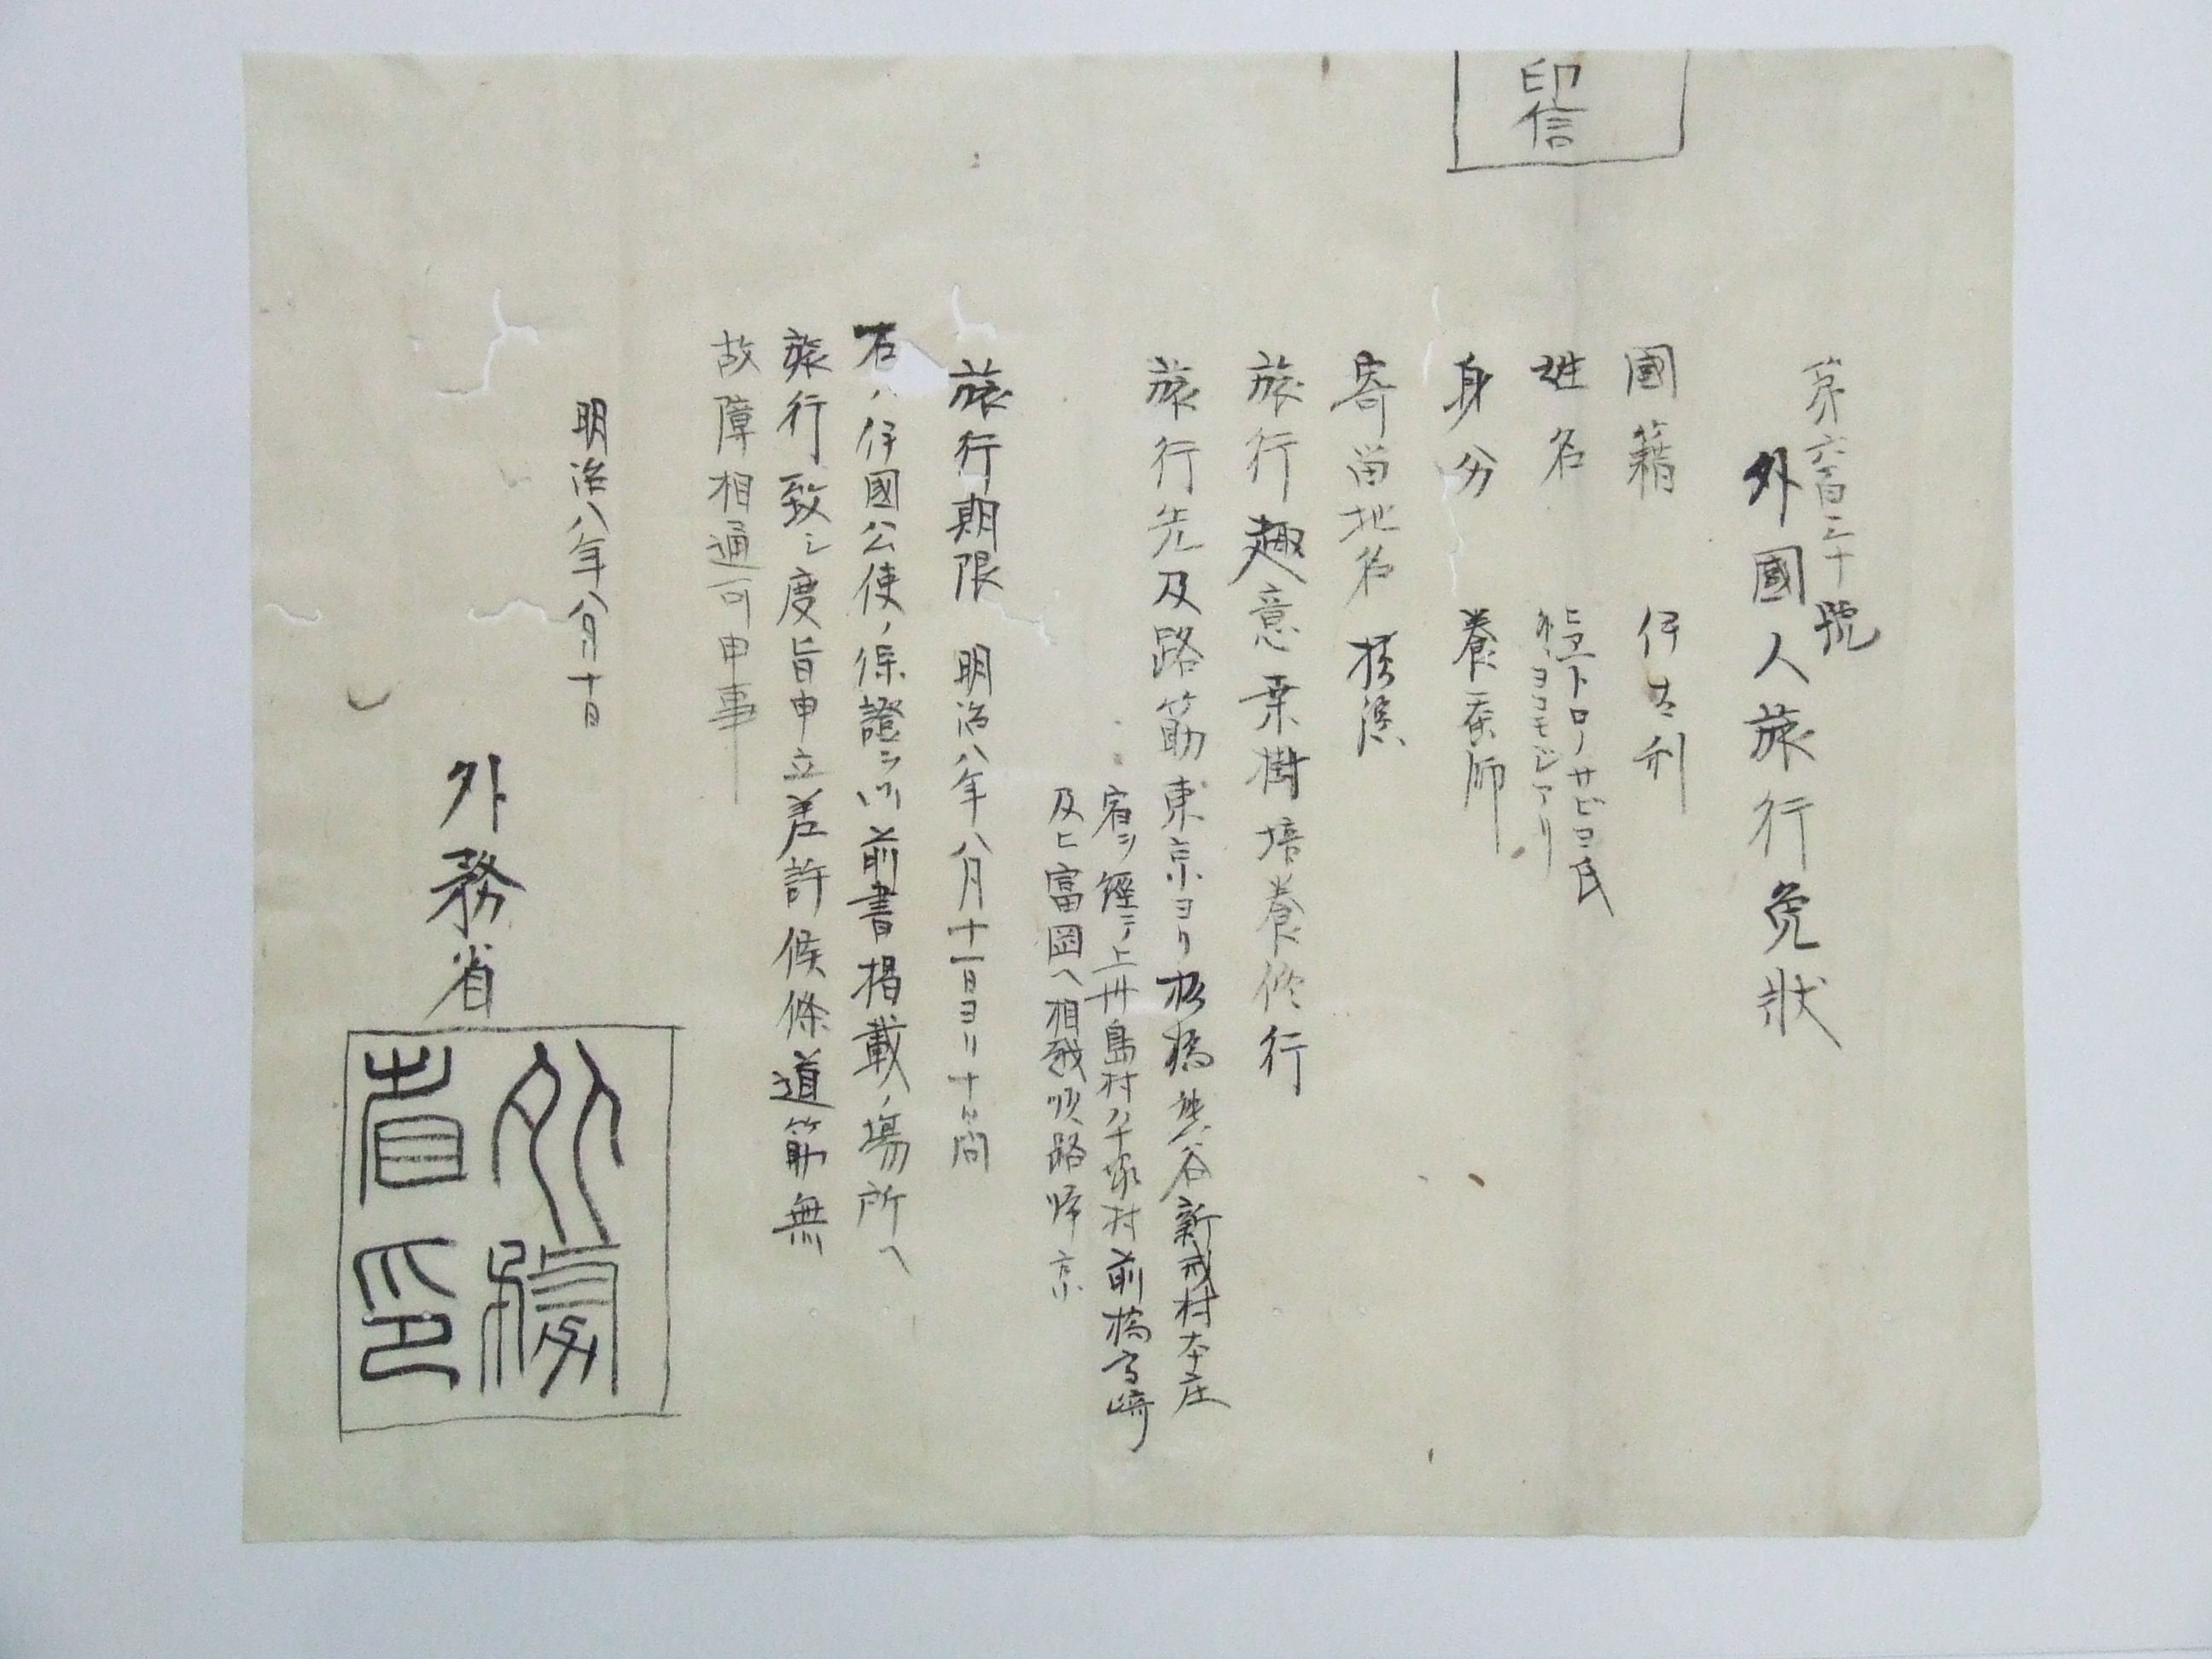 印信
第六百三十號
外國人旅行免状
國籍 伊太利
姓名 ピエトローサビヨ氏
外ニヨコモジアリ
身分 養蚕師
寄留地名 横濱
旅行趣意 桒樹培養修行
旅行先及路筋 東京ヨリ板橋熊谷新戒村本庄
宿ヲ經テ上州島村平塚村前橋高崎
及ヒ富岡ヘ相越順路帰京
旅行期限 明治八年八月十一日ヨリ十日間
右ハ伊國公使ノ保證ヲ以前書掲載ノ場所ヘ
旅行致シ度旨申立差許候條道筋無
故障相通可申事
明治八年八月十日
外務省
外務省印